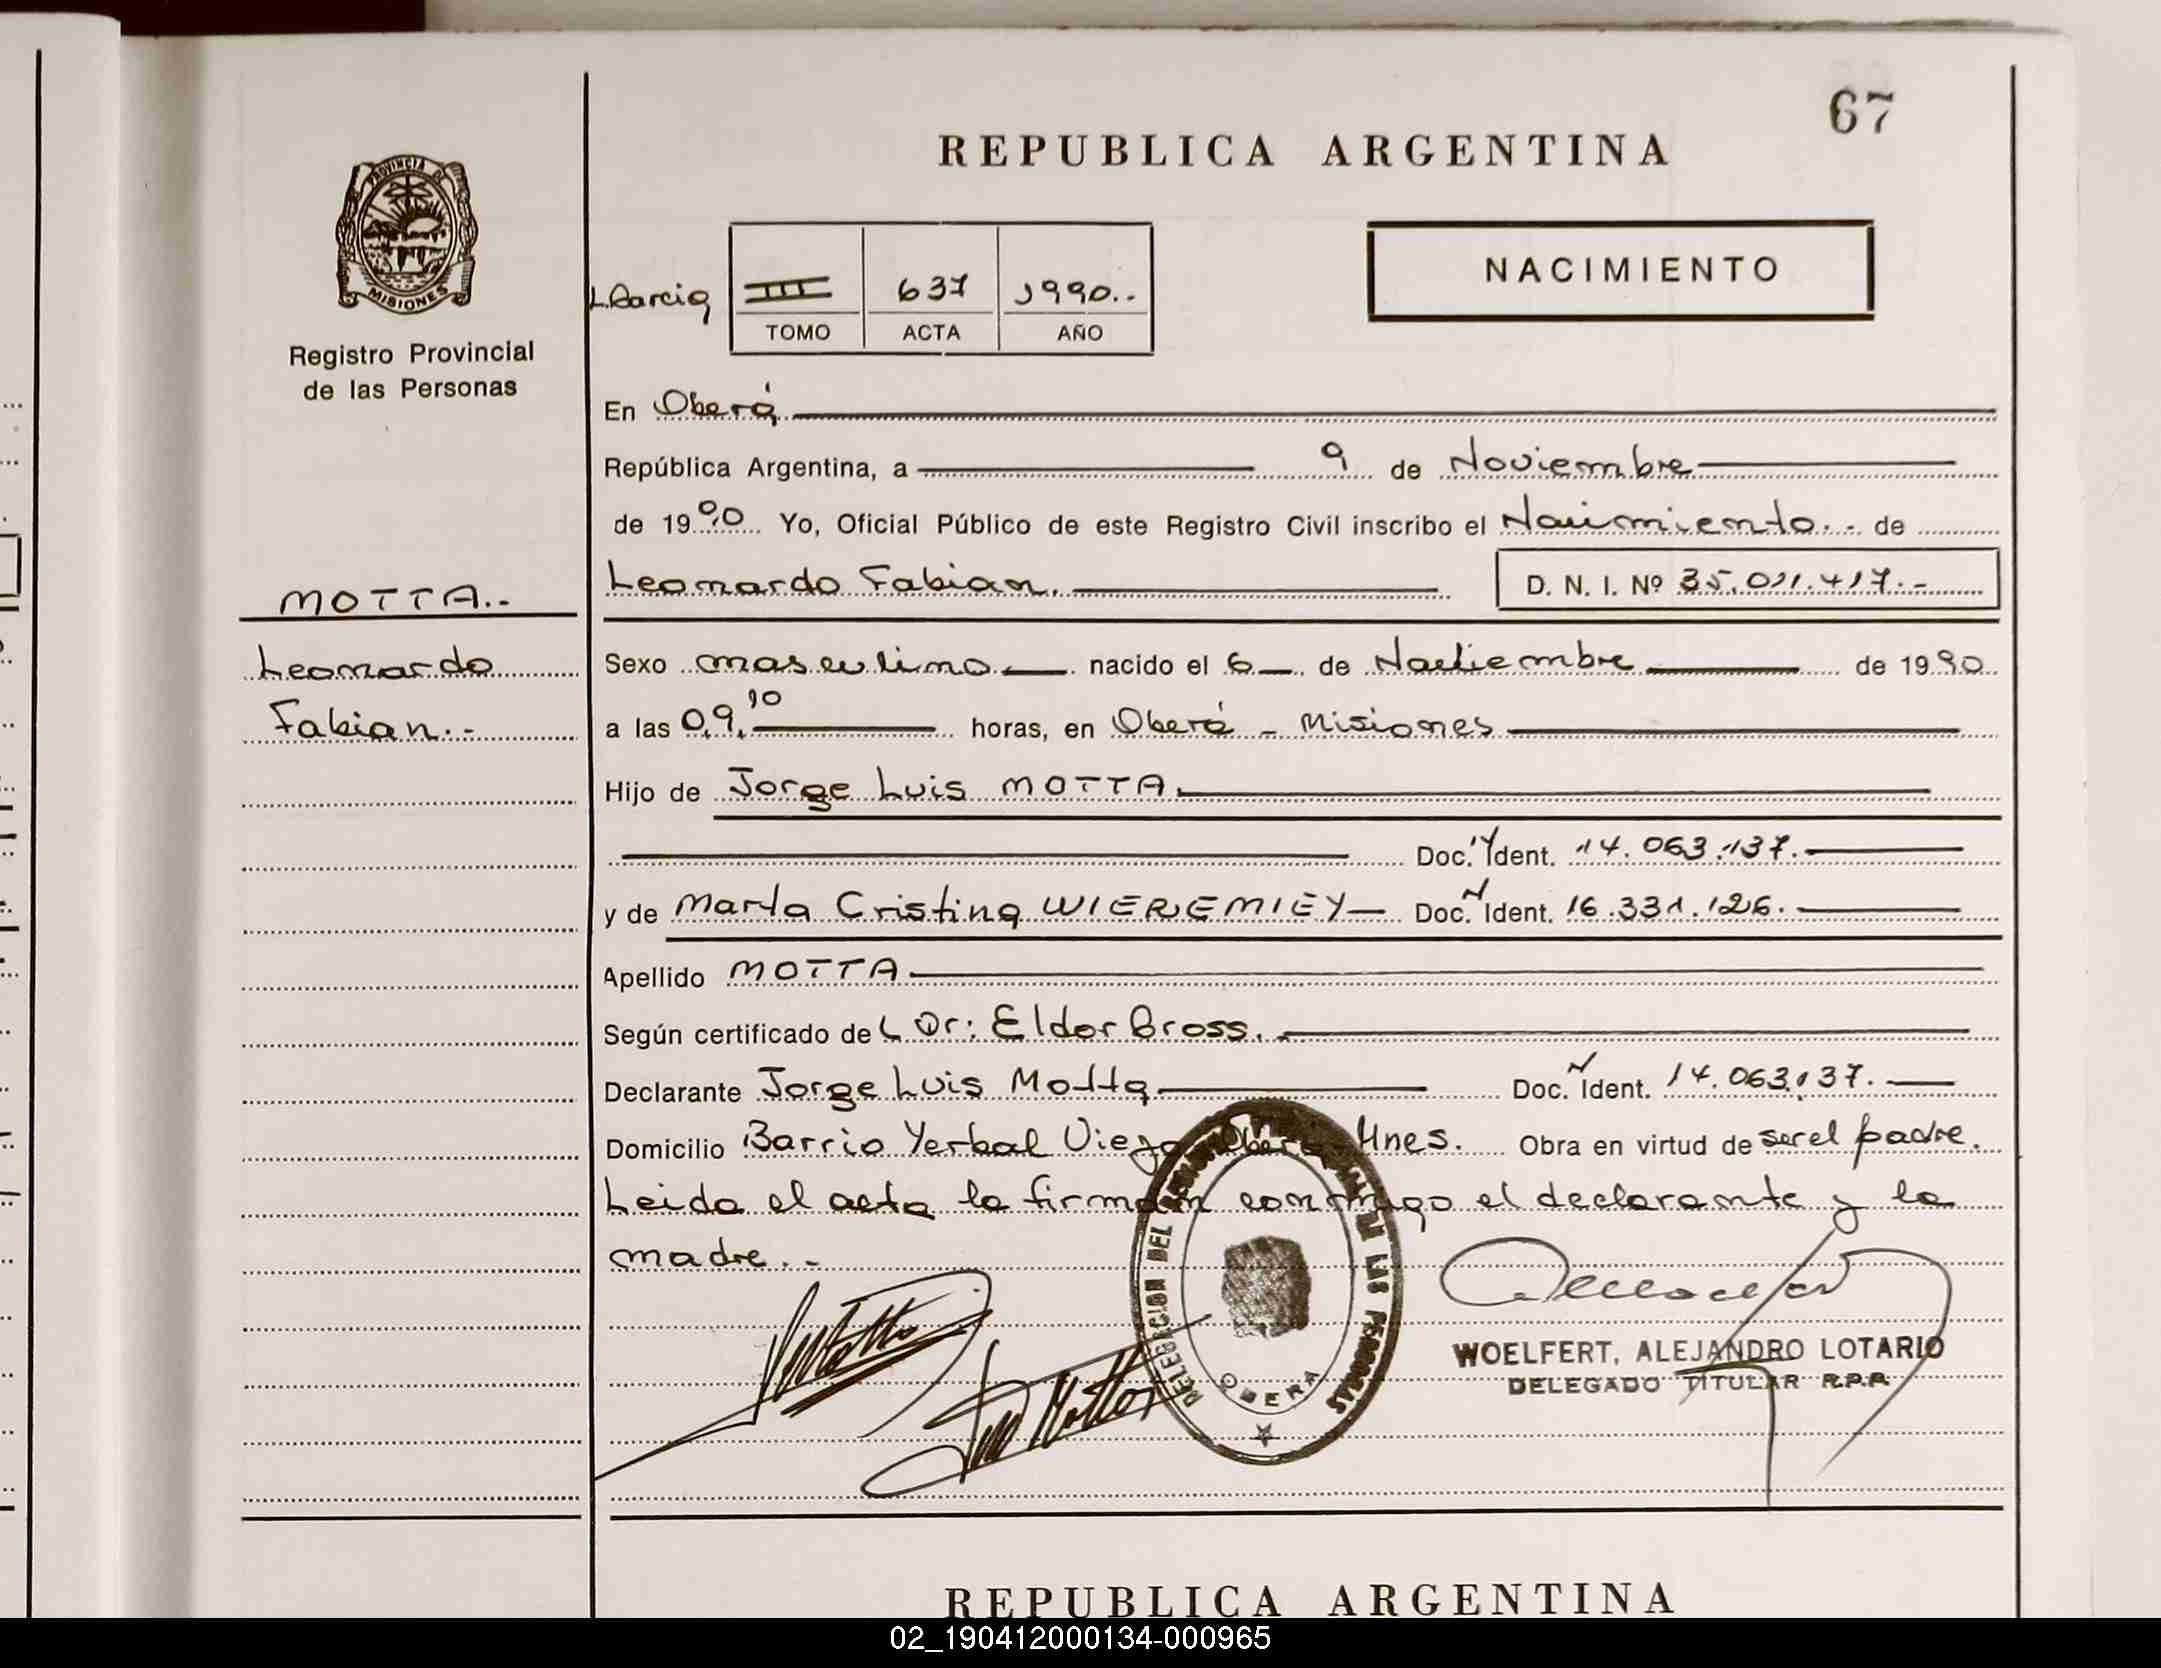 67
REPUBLICA ARGENTINA
PROVINCIA DE MISIONES
Registro Provincial
de las Personas
L.Garcia III 637 1990..
TOMO ACTA AÑO
NACIMIENTO
En Oberá
República Argentina, a 9 de Noviembre
de 1990 Yo, Oficial Público de este Registro Civil inscribo el Nacimiento.. de
Leonardo Fabian. D. N. I. Nº 35.011.417.-
MOTTA.-
Leonardo
Fabian.-
Sexo masculino nacido el 6 de Noviembre de 1990
a las 09.10 horas, en Oberá - Misiones
Hijo de Jorge Luis MOTTA.
Doc. Ident. 14.063.137.
y de Marta Cristina WIEREMIEY Doc. Ident. 16.331.126.
Apellido MOTTA
Según certificado del Dr: Eldor Bross.
Declarante Jorge Luis Motta Doc. Ident. 14.063.137.
Domicilio Barrio Yerbal Viejo Oberá Mnes. Obra en virtud de ser el padre.
Leida el acta la firman conmigo el declarante y la
madre.-
DELEGACION DEL REGISTRO PROVINCIAL DE LAS PERSONAS
OBERA
WOELFERT, ALEJANDRO LOTARIO
DELEGADO TITULAR R.P.P.
REPUBLICA ARGENTINA
02_190412000134-000965